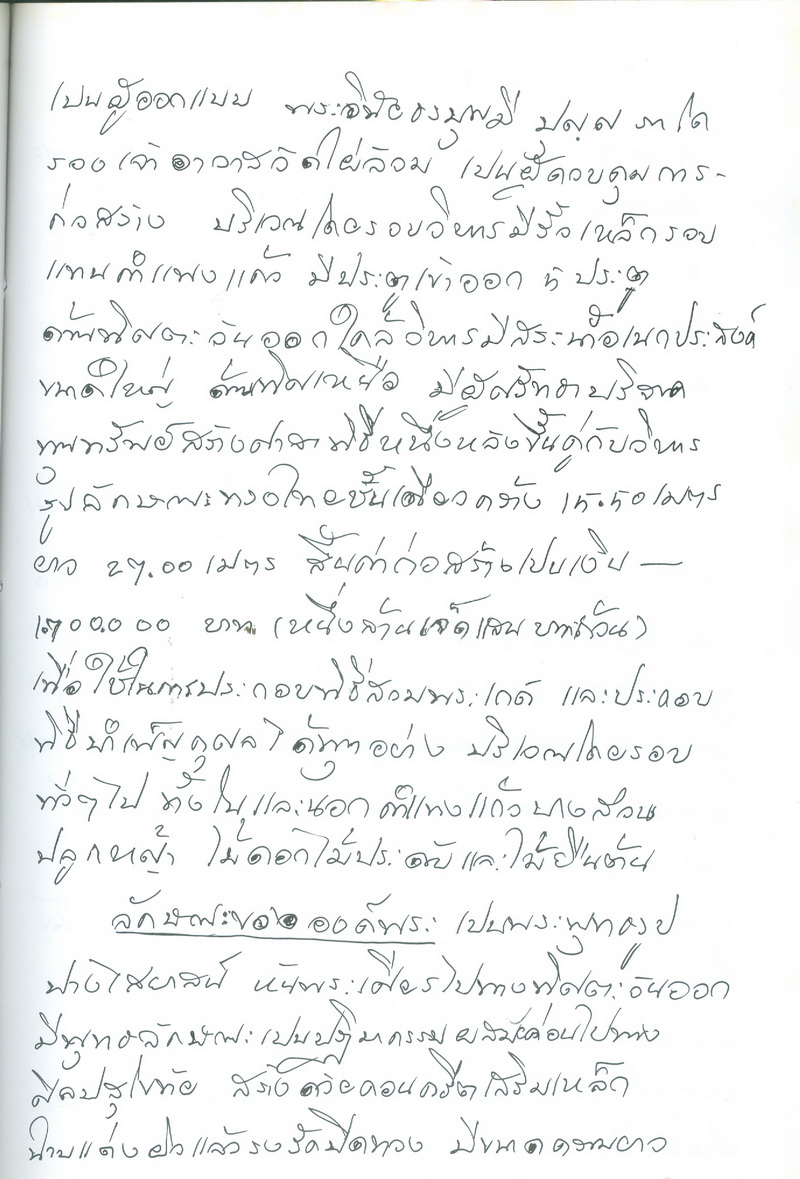 เป็นผู้ออกแบบ พระอธิการบุญมี ปุญฺญภาโค
รองเจ้าอาวาสวัดใผ่ล้อม เป็นผู้ควบคุมการ-
ก่อสร้าง บริเวณโดยรอบวิหารมีรั้วเหล็กรอบ
แทนกำแพงแก้ว มีประตูเข้าออก ๕ ประตู
ด้านทิศตะวันออกใกล้วิหารมีสระน้ำอเนกประสงค์
ขนาดใหญ่ ด้านทิศเหนือ มีผู้ศรัทธาบริจาค
ทุนทรัพย์สร้างศาลาพิธีหนึ่งหลังขึ้นคู่กับวิหาร
รูปลักษณะทรงไทยชั้นเดียวกว้าง ๑๕.๕๐ เมตร
ยาว ๒๗.๐๐ เมตร สิ้นค่าก่อสร้างเป็นเงิน —
๑,๗๐๐,๐๐๐ บาท (หนึ่งล้านเจ็ดแสนบาทถ้วน)
เพื่อใช้ในการประกอบพิธีสวมพระเกตุ และประกอบ
พิธีบำเพ็ญกุศลได้ทุกอย่าง บริเวณโดยรอบ
ทั่วๆไป ทั้งในและนอกกำแพงแก้วบางส่วน
ปลูกหญ้า ไม้ดอกไม้ประดับและไม้ยืนต้น
ลักษณะของ องค์พระ เป็นพระพุทธรูป
ปางไสยาสน์ หันพระเศียรไปทางทิศตะวันออก
มีพุทธลักษณะเป็นปฏิมากรรมผสมค่อนไปทาง
ศิลปสุโขทัย สร้างด้วยคอนกรีตเสริมเหล็ก
ฉาบแต่งผิวแล้วลงรักปิดทอง มีขนาดความยาว